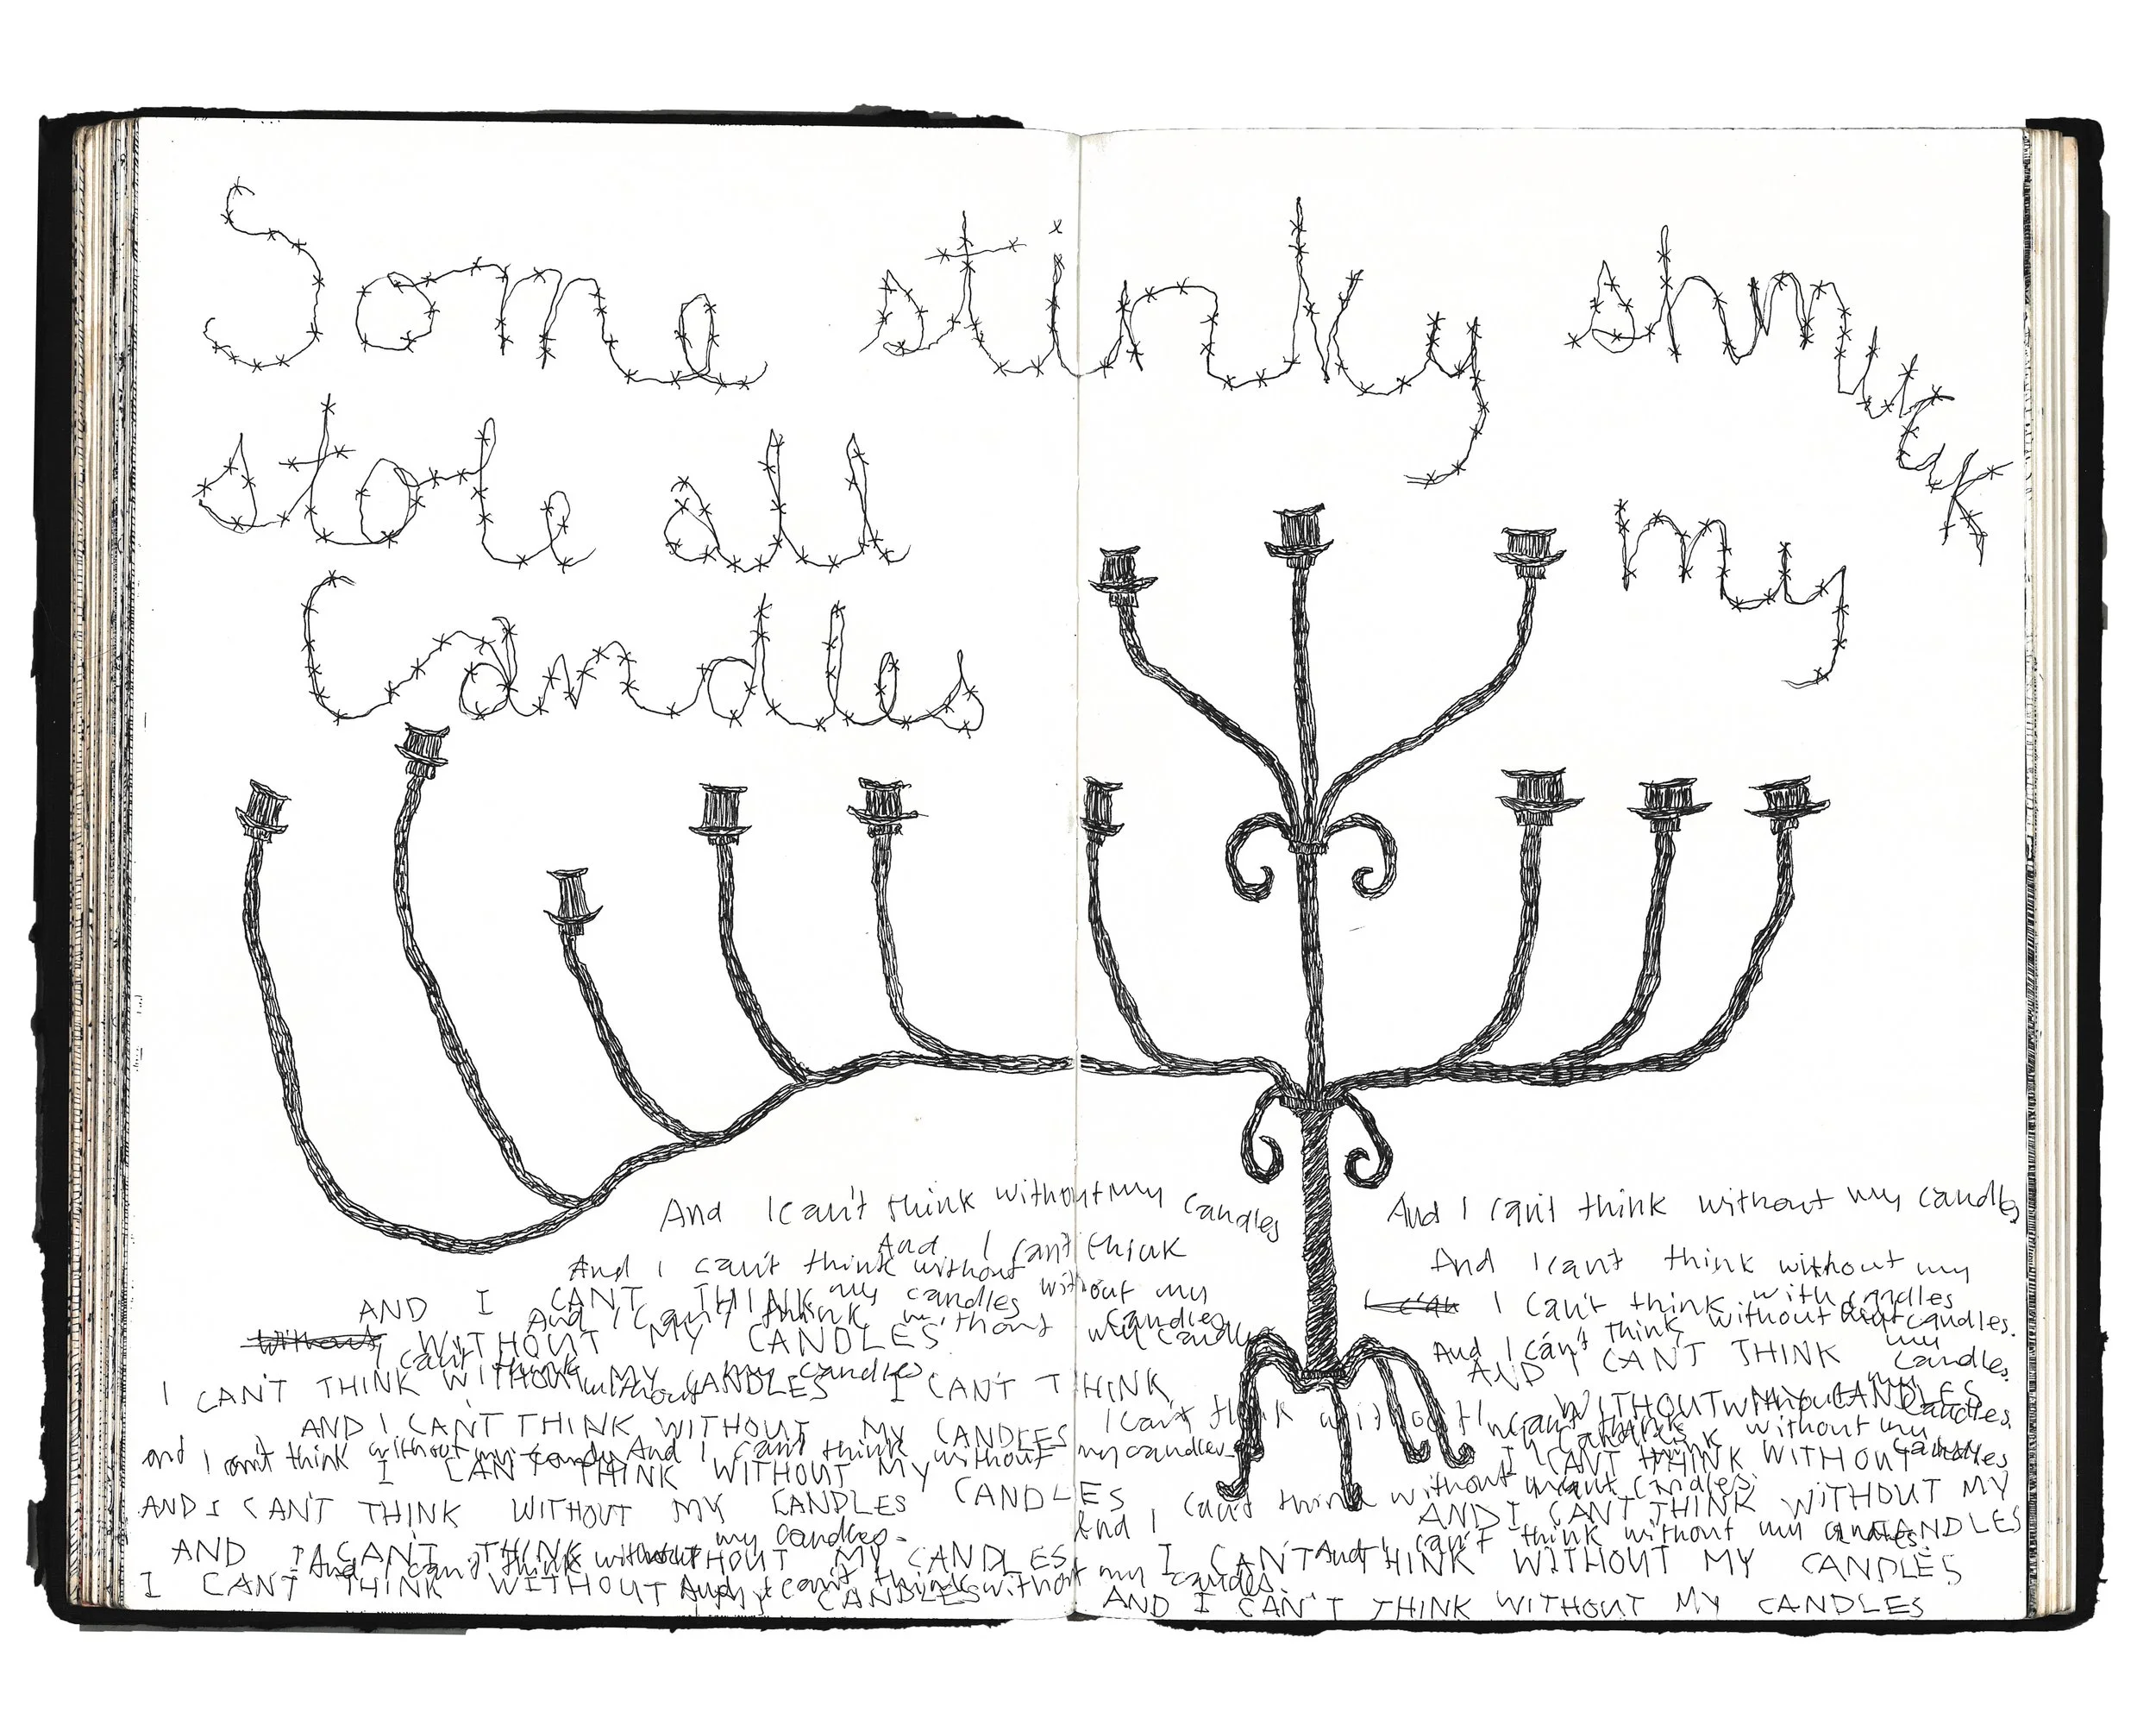 Some stinky shmuck
stole all my
Candles
And I can't think without my candles
And I can't think without my candles
And I can't think
without my
candles
And I can't think without
my candles
And I can't think without my
candles
AND I CAN'T THINK
WITHOUT MY CANDLES
And I can't think without
my candles
I can't think without
my candles
I CAN'T THINK WITHOUT MY CANDLES I CAN'T THINK
AND I CAN'T THINK WITHOUT MY CANDLES
and I can't think without my And I can't think without my candles
I CAN'T THINK WITHOUT MY
CANDLES
AND I CAN'T THINK WITHOUT MY CANDLES
my candles.
AND I CAN'T THINK WITHOUT MY CANDLES
And I can't think without
I CAN'T THINK WITHOUT MY CANDLES
And I can't think without my candles
I can't think without candles.
And I can't think without
my candles.
AND I CAN'T THINK
WITHOUT MY CANDLES
I can't think
without my candles
I CAN'T THINK WITHOUT
And I can't think without candles
AND I CAN'T THINK WITHOUT MY
CANDLES
And I can't think without my candles.
I CAN'T THINK WITHOUT MY CANDLES
AND I CAN'T THINK WITHOUT MY CANDLES